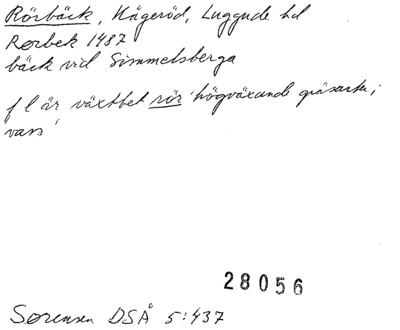 Rörbäck, Kågeröd, Luggude hd
Rorbek 1487
bäck vid Simmelsberga
f l är växtbet rör 'högväxande gräsarter;
vass'
28056
Sørensen DSÅ 5:437